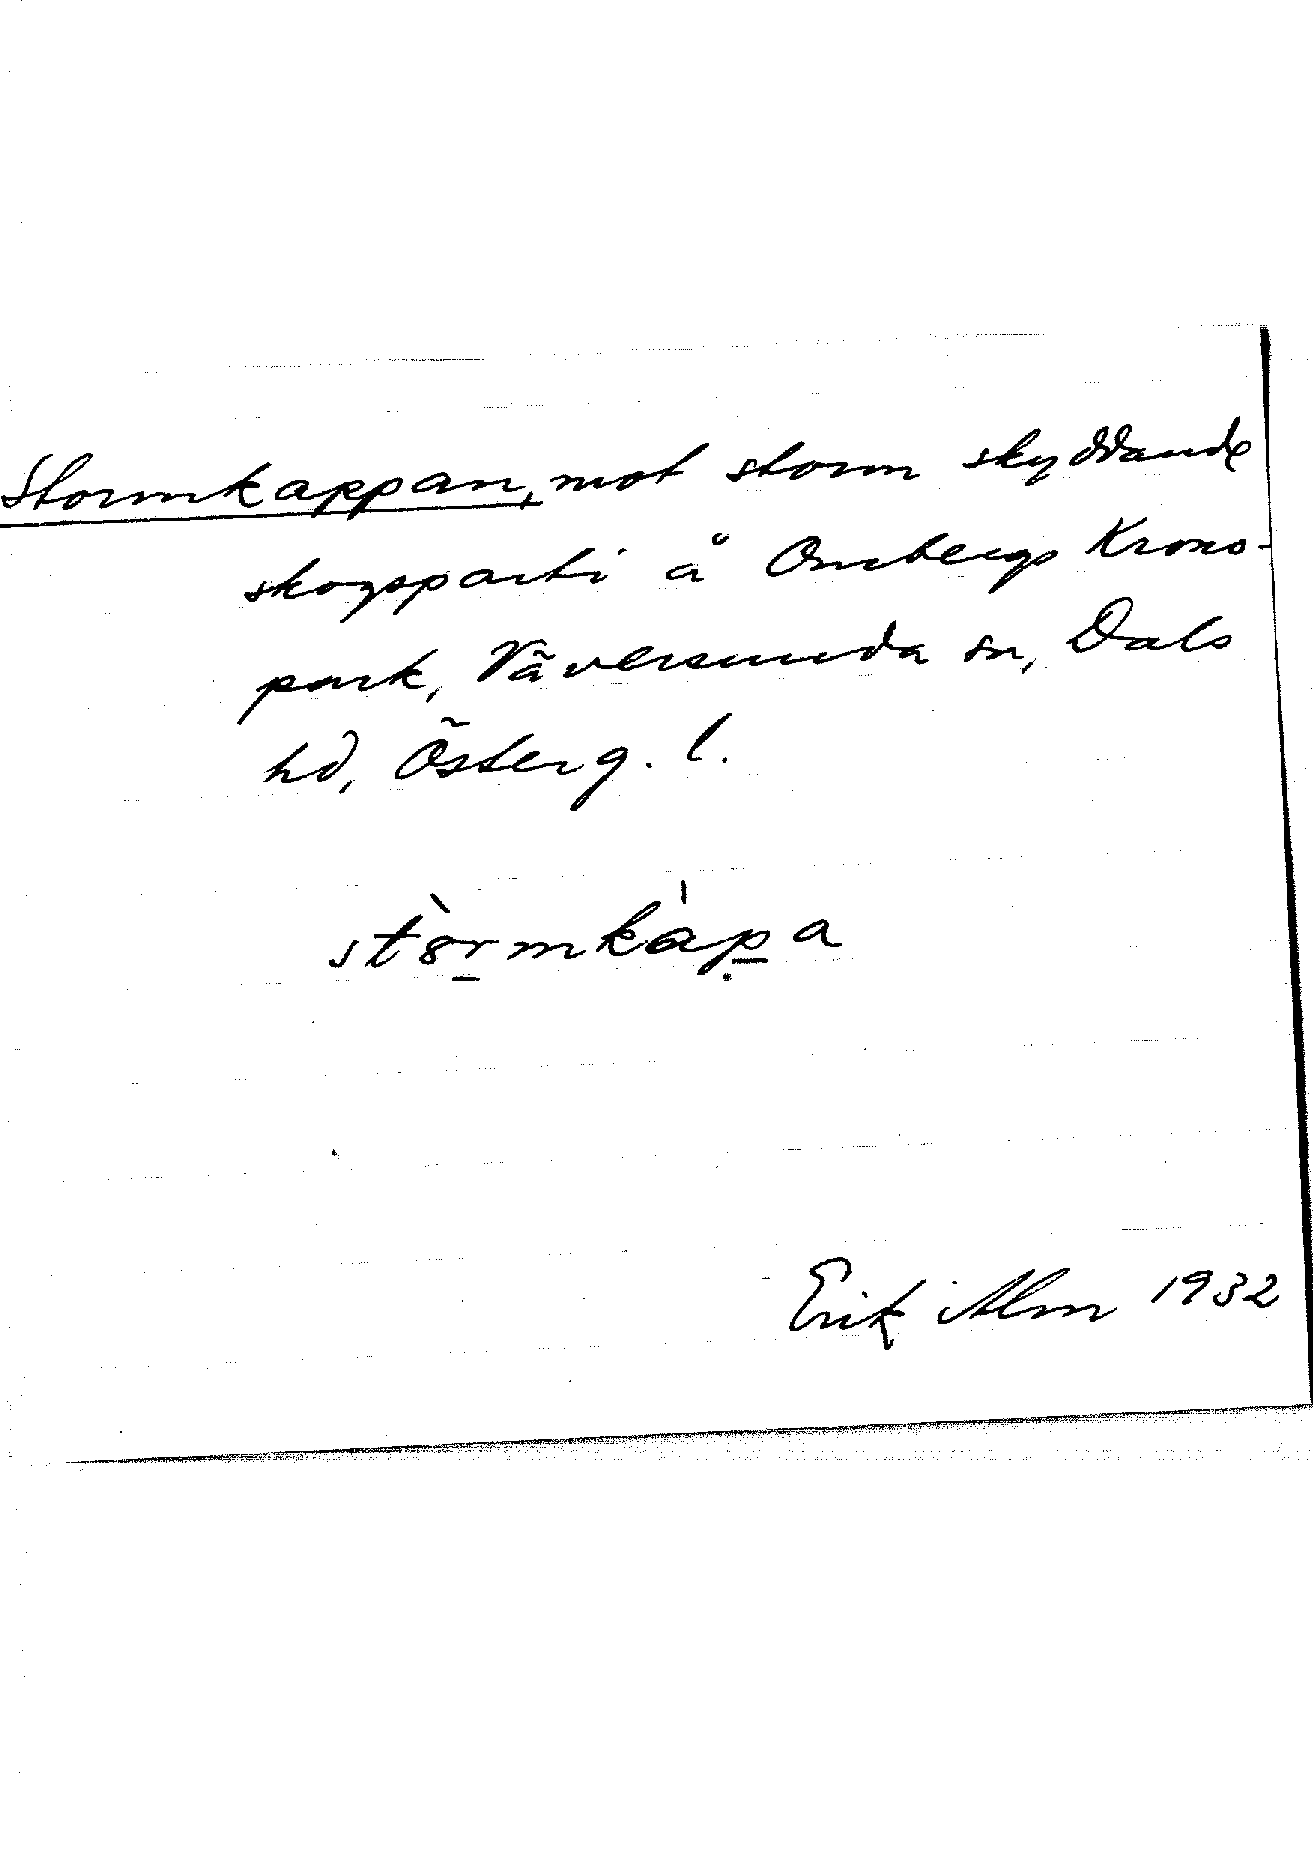 Stormkappan, mot storm skyddande
skogsparti å Ombergs Krono-
park, Väversunda sn, Dals
hd, Österg. l.
stòrmkápa
Erik Alm 1932